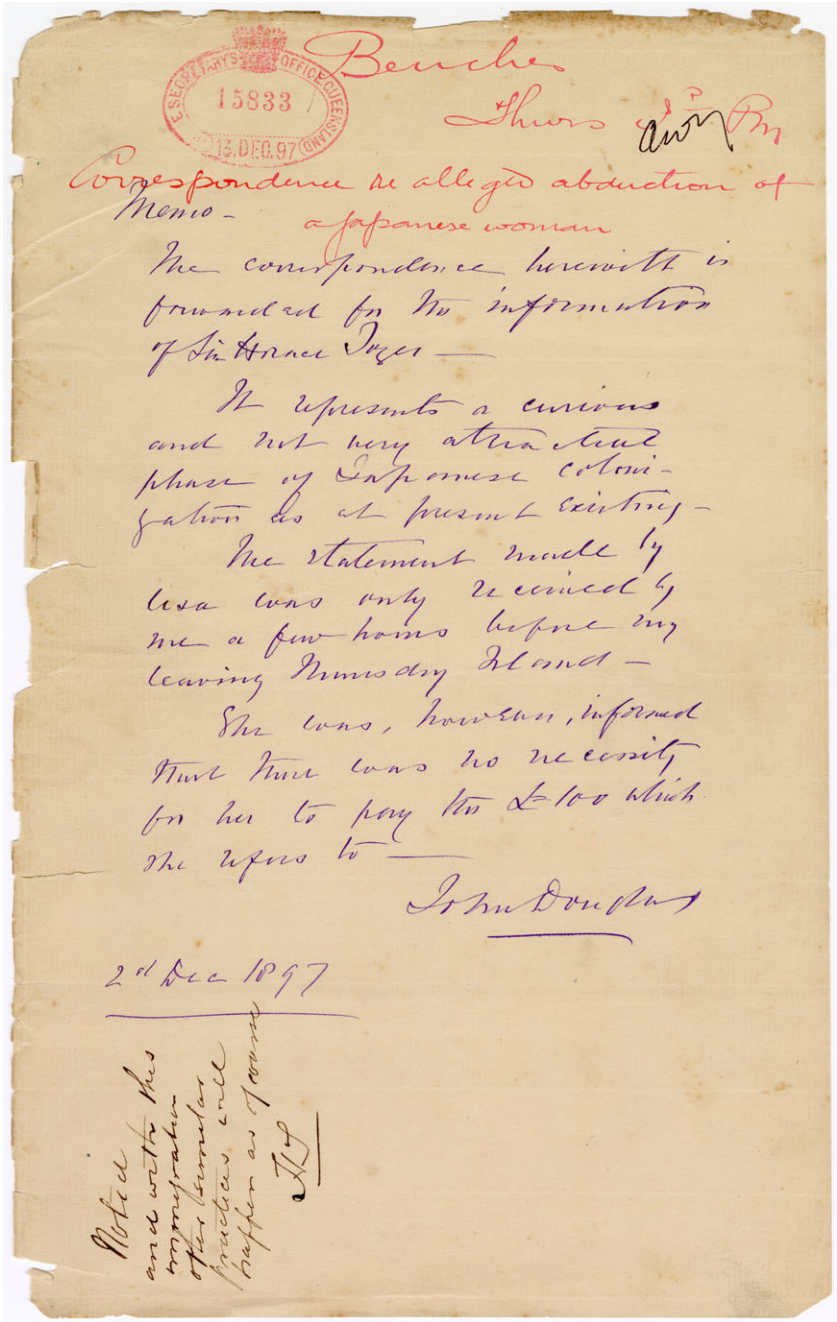 Benches
E SECRETARY'S OFFICE, QUEENSLAND
15833
13. DEC. 97
Thurs
PM
Correspondence re alleged abduction of
a Japanese woman
Memo -
The correspondence herewith is
forwarded for the information
of Sir Horace Tozer —
It represents a curious
and not very attractive
phase of Japanese coloni-
zation as at present existing -
The statement made by
Usa was only received by
me a few hours before my
leaving Thursday Island -
She was, however, informed
that there was no necessity
for her to pay the £100 which
she refers to —
John Douglas
2d Dec 1897
Noted
and with this
immigration
other similar
practices will
happen as of course
HT